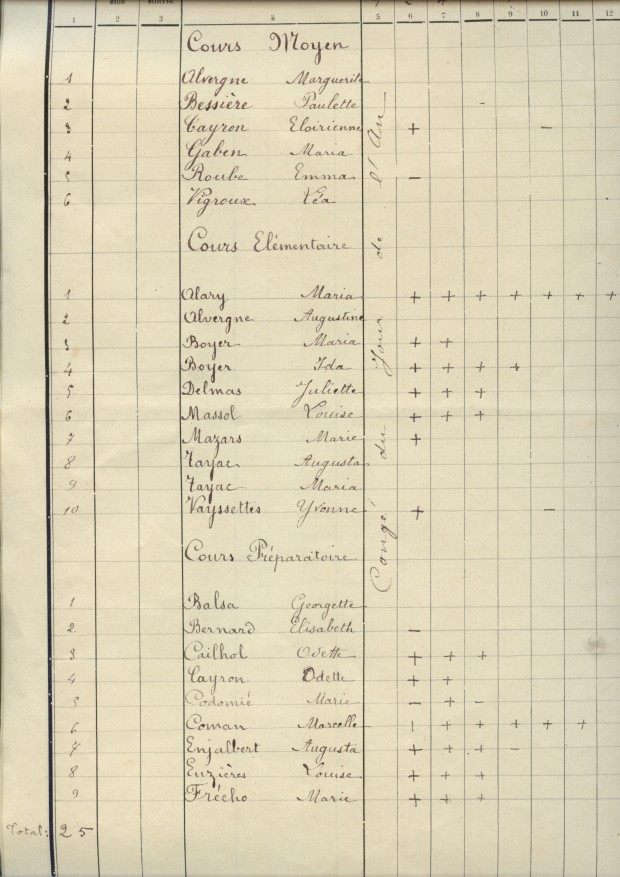 1 2 3 4 5 6 7 8 9 10 11 12
Cours Moyen
1 Alvergne Marguerite
2 Bessière Paulette -
3 Cayron Eloirienne + -
4 Gaben Maria
5 Roube Emma -
6 Vigroux Léa
Cours Elémentaire
1 Alary Maria + + + + + + +
2 Alvergne Augustine
3 Boyer Maria + +
4 Boyer Ida + + + +
5 Delmas Juliette + + +
6 Massol Louise + + +
7 Mazars Marie +
8 Tayac Augusta
9 Tayac Maria
10 Vayssettes Yvonne + -
Cours Préparatoire
1 Balsa Georgette
2 Bernard Elisabeth -
3 Cailhol Odette + + +
4 Cayron Odette + +
5 Codomié Marie - + -
6 Coman Marcelle | + + + + +
7 Enjalbert Augusta + + + -
8 Euzières Louise + + +
9 Frécho Marie + + +
Total: 25
Congé du Jour de l'An